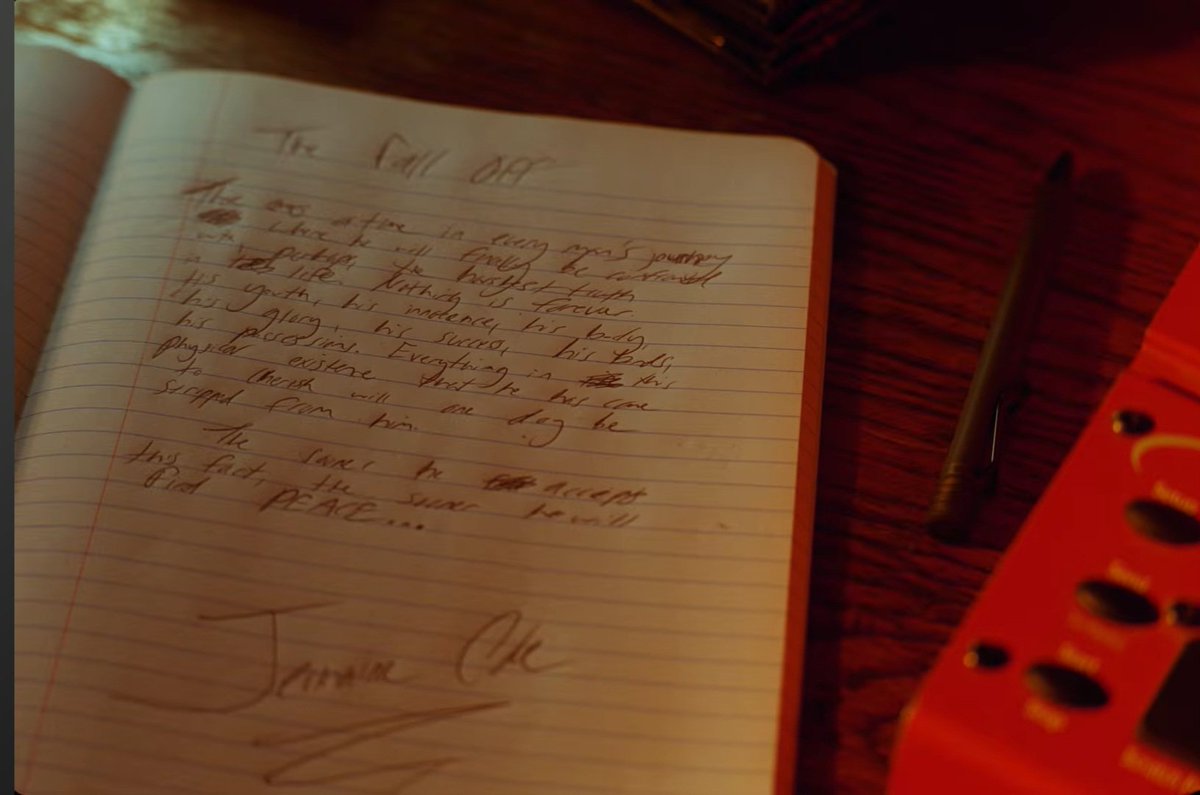 The Fall Off
There comes a time in every man's journey
where he will finally be confronted
with, perhaps, the harshest truth
in life. Nothing is forever.
His youth, his innocence, his body,
his glory, his success, his
his possessions. Everything in this
physical existence that he has come
to cherish will one day be
stripped from him.
The sooner he accepts
this fact, the sooner he will
find PEACE...
Jermaine Cole